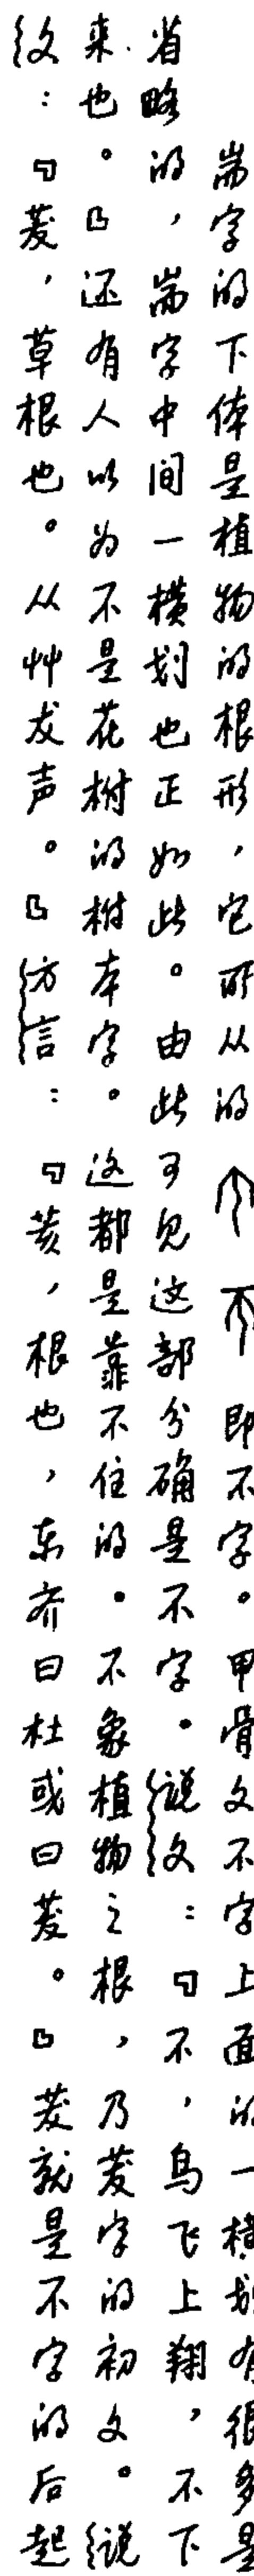 耑字的下体是植物的根形，它所从的 即不字。甲骨文不字上面的一横划有很多是
省略的，耑字中间一横划也正如此。由此可见这部分确是不字。说文：『不，鸟飞上翔，不下
来也。』还有人以为不是花柎的柎本字。这都是靠不住的。不象植物之根，乃茇字的初文。说
文：『茇，草根也。从艸犮声。』方言：『荄，根也，东齐曰杜或曰茇。』茇就是不字的后起